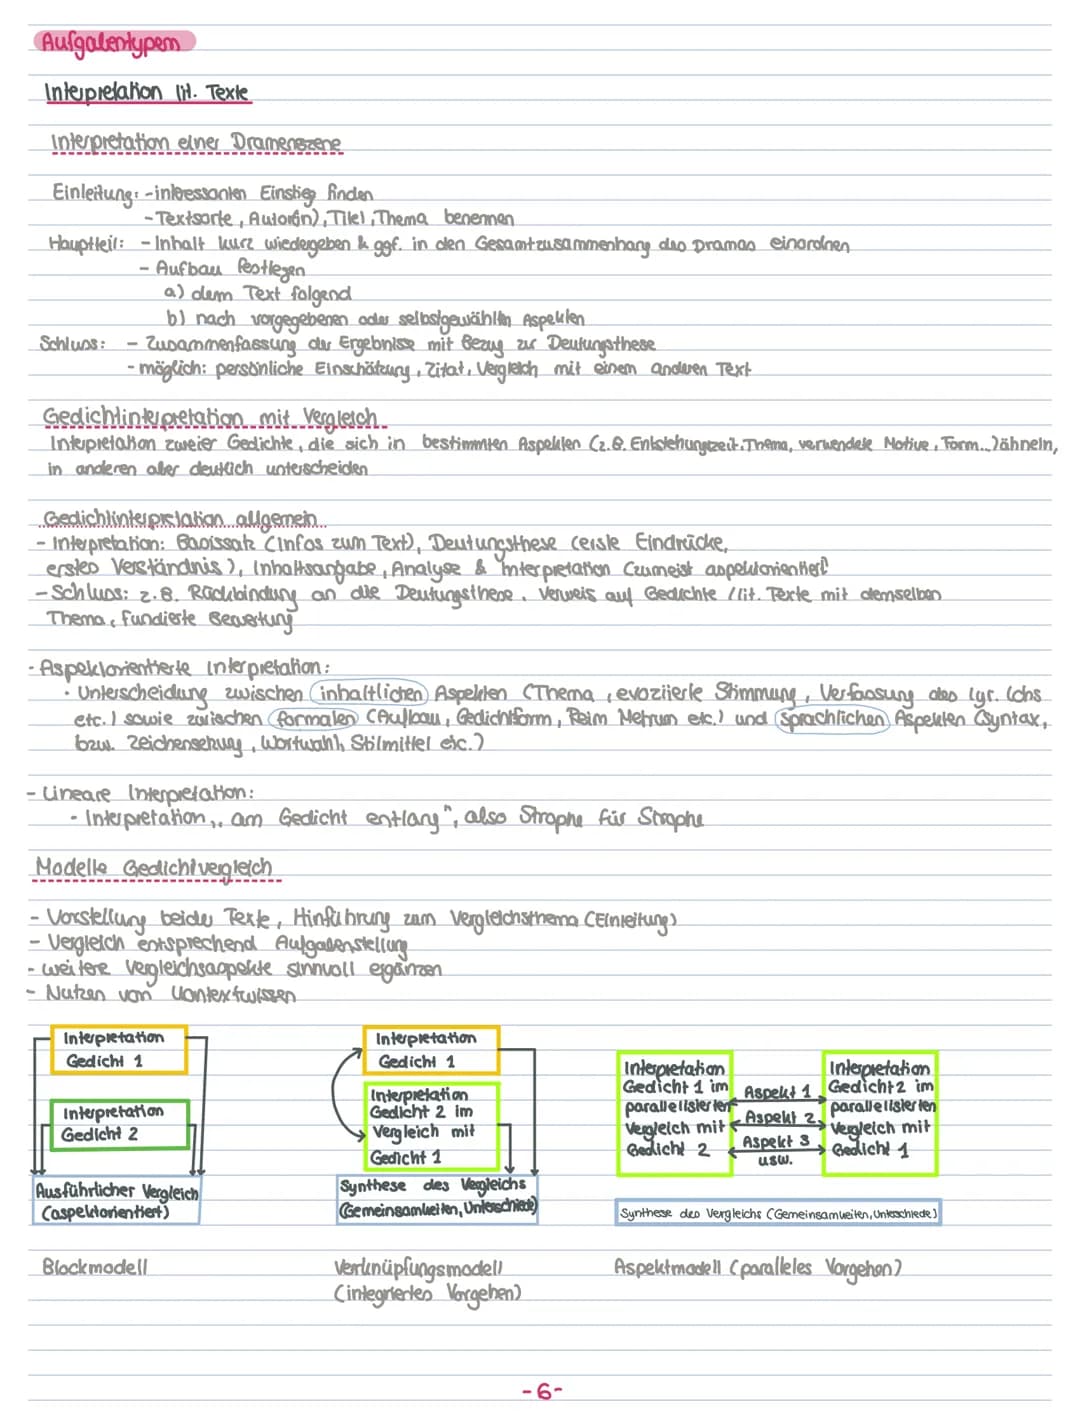 Aufgabentypen
Interpretation lit. Texte
Interpretation einer Dramenszene
Einleitung: - interessanten Einstieg finden
- Textsorte, Autor(in), Titel, Thema benennen
Hauptteil: - Inhalt kurz wiedergeben & ggf. in den Gesamtzusammenhang des Dramas einordnen
- Aufbau festlegen
a) dem Text folgend
b) nach vorgegebenen oder selbstgewählten Aspekten
Schluss: - Zusammenfassung der Ergebnisse mit Bezug zur Deutungsthese
- möglich: persönliche Einschätzung, Zitat, Vergleich mit einem anderen Text
Gedichtinterpretation mit Vergleich
Interpretation zweier Gedichte, die sich in bestimmten Aspekten (z.B. Entstehungszeit, Thema, verwendete Motive, Form...) ähneln,
in anderen aber deutlich unterscheiden
Gedichtinterpretation allgemein
- Interpretation: Basissatz (Infos zum Text), Deutungsthese (erste Eindrücke,
erstes Verständnis), Inhaltsangabe, Analyse & Interpretation (zumeist aspektorientiert)
- Schluss: z.B. Rückbindung an die Deutungsthese, Verweis auf Gedichte / lit. Texte mit demselben
Thema, fundierte Bewertung
- Aspektorientierte Interpretation:
• Unterscheidung zwischen inhaltlichen Aspekten (Thema, evozierte Stimmung, Verfassung des lyr. Ichs
etc.) sowie zwischen formalen (Aufbau, Gedichtform, Reim Metrum etc.) und sprachlichen Aspekten (Syntax,
bzw. Zeichensetzung, Wortwahl, Stilmittel etc.)
- Lineare Interpretation:
• Interpretation „am Gedicht entlang", also Strophe für Strophe
Modelle Gedichtvergleich
- Vorstellung beider Texte, Hinführung zum Vergleichsthema (Einleitung)
- Vergleich entsprechend Aufgabenstellung
- weitere Vergleichsaspekte sinnvoll ergänzen
- Nutzen von Kontextwissen
Interpretation
Gedicht 1
Interpretation
Gedicht 2
Ausführlicher Vergleich
(aspektorientiert)
Blockmodell
Interpretation
Gedicht 1
Interpretation
Gedicht 2 im
Vergleich mit
Gedicht 1
Synthese des Vergleichs
(Gemeinsamkeiten, Unterschiede)
Verknüpfungsmodell
(integriertes Vorgehen)
Interpretation
Gedicht 1 im
parallelisierten
Vergleich mit
Gedicht 2
Aspekt 1
Aspekt 2
Aspekt 3
usw.
Interpretation
Gedicht 2 im
parallelisierten
Vergleich mit
Gedicht 1
Synthese des Vergleichs (Gemeinsamkeiten, Unterschiede)
Aspektmodell (paralleles Vorgehen)
- 6 -